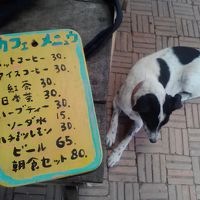 カフェ メニュウ
ホットコーヒー 30.
アイスコーヒー 30.
紅茶 30.
日本茶 30.
ハーブティー 30.
ソーダ水 15.
はちミツレモン 30.
ビール 65.
朝食セット 80.